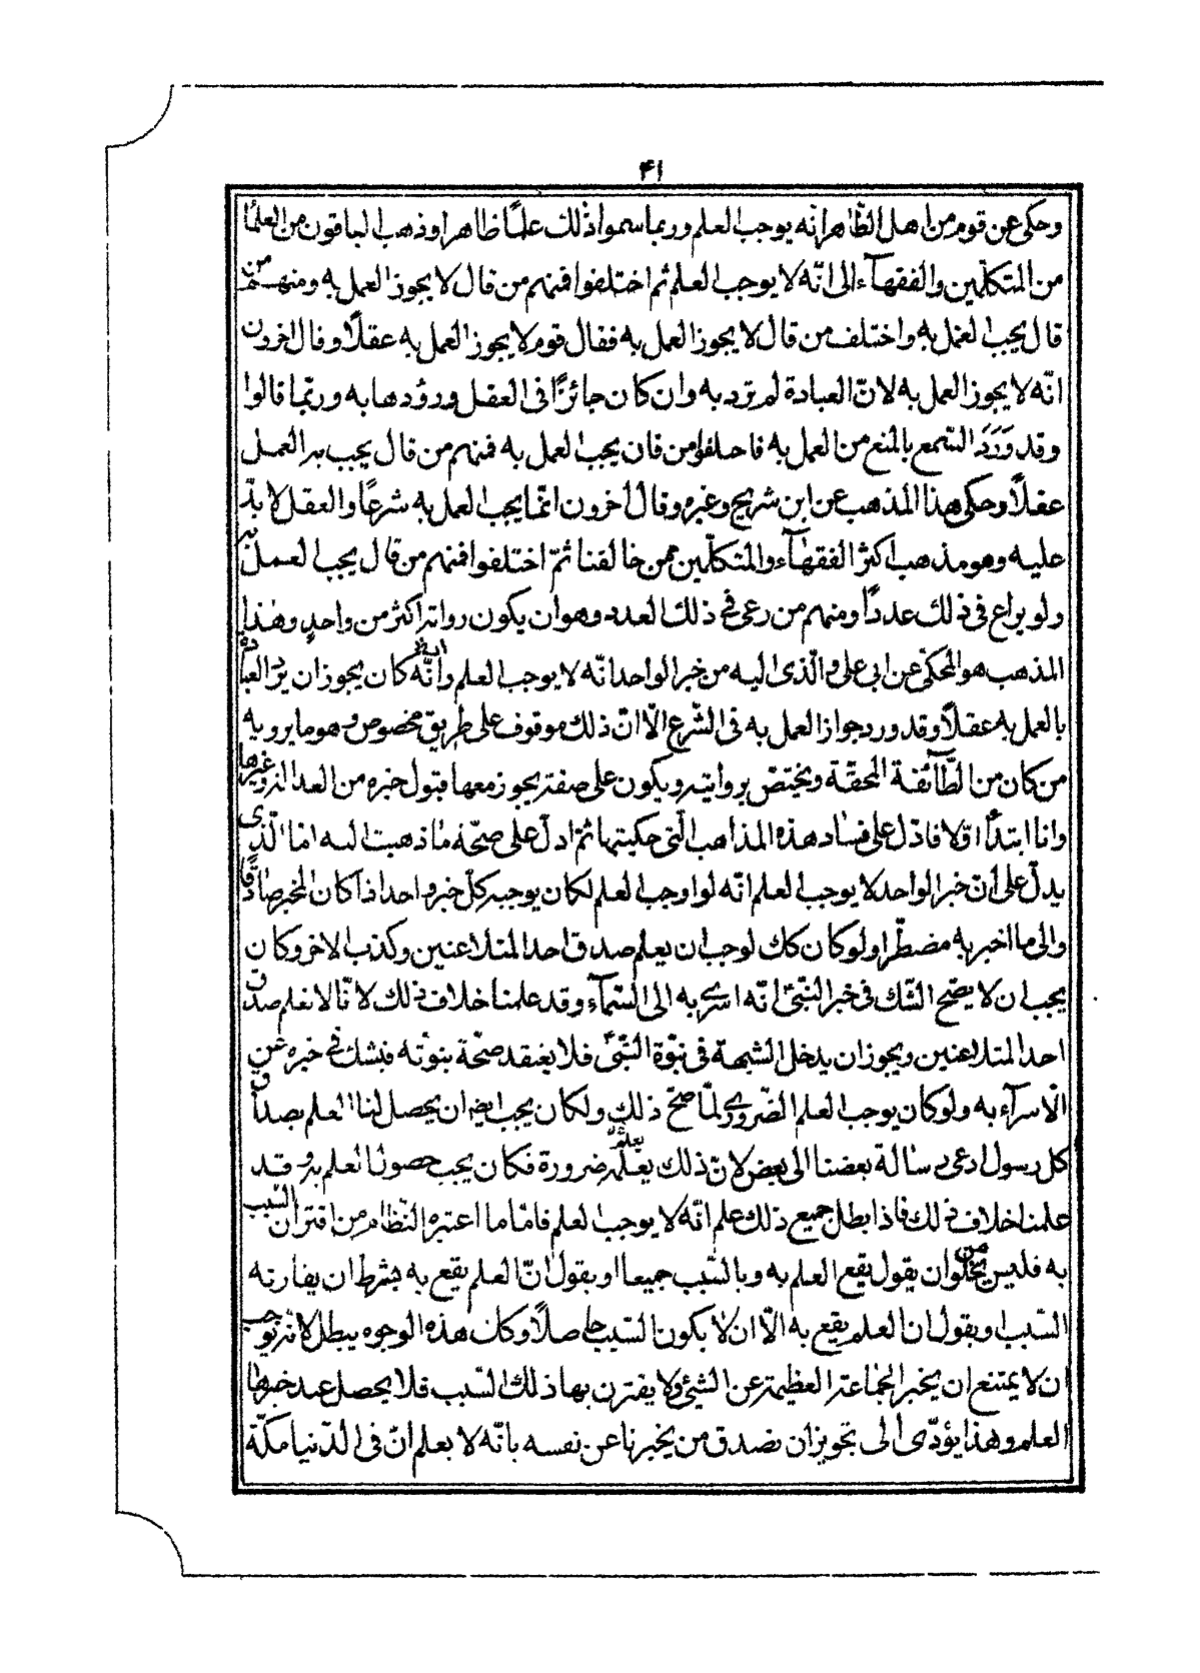 ۴۱
وحكى عن قوم من اهل الظّاهر انّه يوجب العلم وربما سموا ذلك علمًا ظاهرا وذهب الباقون من العلمآ
من المتكلّمين والفقهآء الى انّه لا يوجب العلم ثم اختلفوا فمنهم من قال لا يجوز العمل به ومنهم من
قال يجب العمل به واختلف من قال لا يجوز العمل به فقال قوم لا يجوز العمل به عقلًا وقال اخرون
انّه لا يجوز العمل به لانّ العبادة لم ترد به وان كان جائزًا فى العقل ورودها به وربّما قالوا
وقد وَرَدَ السّمع بالمنع من العمل به فاحلفوا من فان يجب العمل به فمنهم من قال يجب به العمل
عقلًا وحكى هذا المذهب عن ابن شريح وغيره وقال اخرون انّما يجب العمل به شرعًا والعقل لا يدّ
عليه وهو مذهب اكثر الفقهآء والمتكلّمين ممن خالفنا ثمّ اختلفوا فمنهم من قال يجب العمل به
ولو يراع فى ذلك عددًا ومنهم من رعى فى ذلك العدد وهو ان يكون رواته اكثر من واحدٍ وهذا
المذهب هو المحكىّ عن ابى على والّذى اليه من خبر الواحد انّه لا يوجب العلم وانّه كان يجوز ان يرد العبادة
بالعمل به عقلًا وقد ورد جواز العمل به فى الشّرع الّا انّ ذلك موقوف على طريق مخصوص وهو ما يرويه
من كان من الطّآئفة المحقّة ويختصّ بروايته ويكون على صفة يجوز معها قبول خبره من العدالة وغيرها
وانا ابتدأ اوّلا فادلّ على فساد هذه المذاهب الّتى حكيتها ثم ادلّ على صحّة ما ذهبت اليه امّا الّذى
يدلّ على انّ خبر الواحد لا يوجب العلم انّه لو اوجب العلم لكان يوجبه كلّ خبر واحد اذا كان المخبر صادقًا
والى ما اخبر به مضطرّا ولو كان كك لوجب ان يعلم صدق احد المتلاعنين وكذب الاخر وكان
يجب ان لا يصحّ الشّك فى خبر النّبىّ انّه اسرى به الى السّمآء وقد علمنا خلاف ذلك لانّا لا نعلم صدق
احد المتلاعنين ويجوز ان يدخل الشبهة فى نبوّة النّبىّ فلا يعتقد صحّة بنوته فيشك فى خبره عن
الاسرآء به ولو كان يوجب العلم الضّرورى لمّا صحّ ذلك ولكان يجب ايضه ان يحصل لنا العلم بصدق
كل رسول ادعى رسالة بعضنا الى بعض لانّ ذلك يعلمه ضرورة فكان يجب حصول العلم به وقد
علمنا خلاف ذلك فاذا بطل جميع ذلك علم انّه لا يوجب العلم فامّا ما اعتبره النّظام من اقتران السّبب
به فليس يخلو من ان يقول يقع العلم به وبالسّبب جميعا او يقول انّ العلم يقع به بشرط ان يقارنه
السّبب او يقول ان العلم يقع به الّا ان لا يكون السّبب حاصلًا وكانّ هذه الوجوه يبطل لانّه يوجب
ان لا يمتنع ان يخبر الجماعة العظيمة عن الشئ ولا يقترن بها ذلك السّبب فلا يحصل عند خبرها
العلم وهذا يؤدّى الى تجويز ان نصدق من يخبرنا عن نفسه بانّه لا يعلم انّ فى الدّنيا مكّة